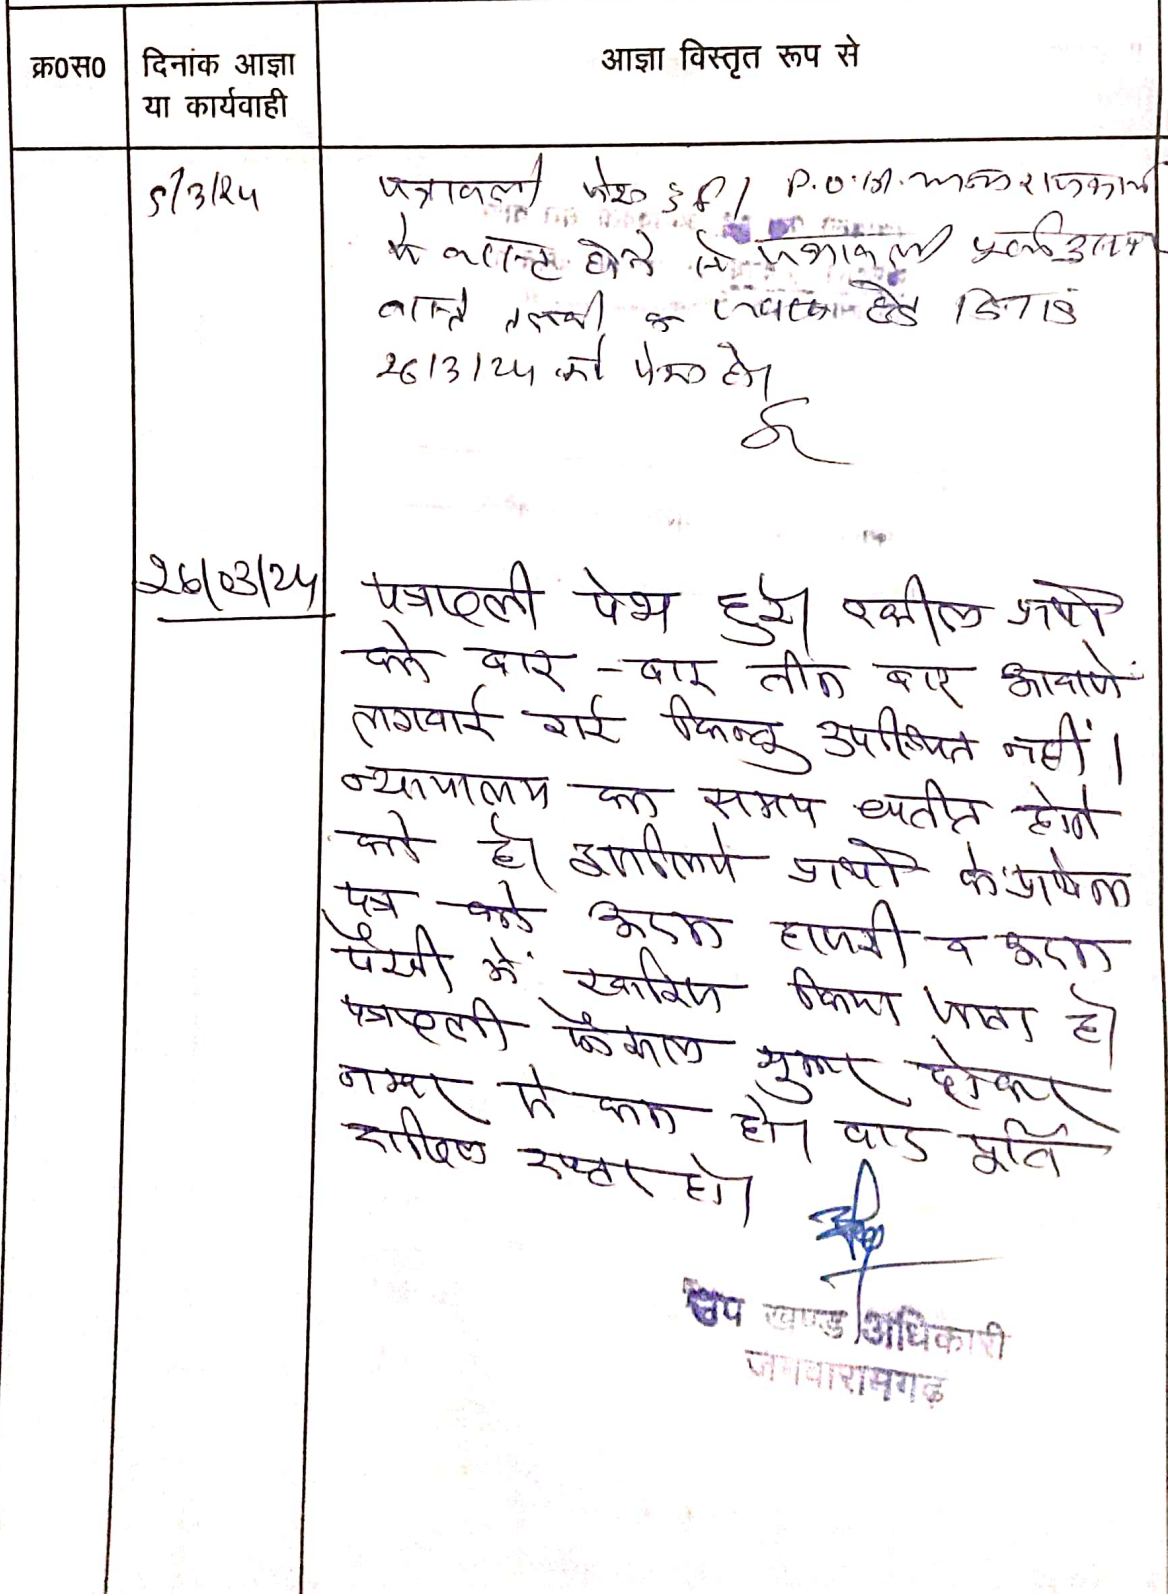 क्र0स0
दिनांक आज्ञा
या कार्यवाही
आज्ञा विस्तृत रूप से
5/3/24
पत्रावली पेश हुई। P.O. राजकार्य
में व्यस्त होने से पत्रावली
वास्ते तलबी व जवाब हेतु दिनांक
26/3/24 को पेश हो।
26/03/24
पत्रावली पेश हुई। वकील प्रार्थी
को बार-बार तीन बार आवाजें
लगवाई गई किन्तु उपस्थित नहीं।
न्यायालय का समय व्यतीत होने
को है। इसलिये प्रार्थी के प्रार्थना
पत्र को अदम हाजरी व अदम
पैरवी में खारिज किया जाता है।
पत्रावली फैसल शुमार होकर
नम्बर से कम हो। बाद पूर्ति
दाखिल दफ्तर हो।
उप खण्ड अधिकारी
जमवारामगढ़